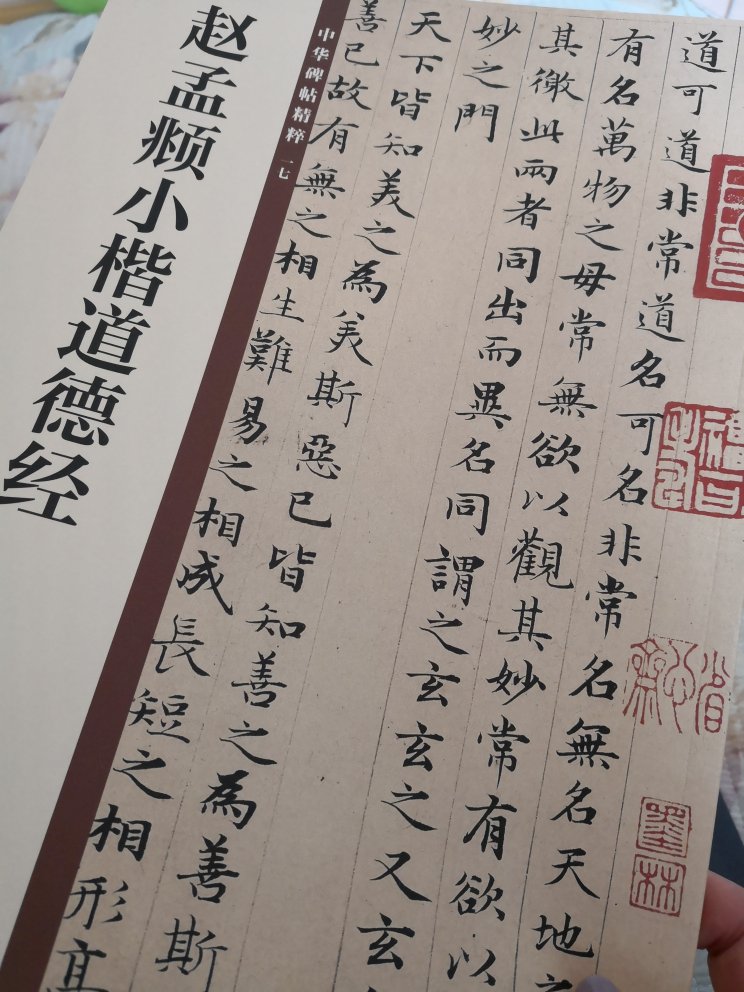 赵孟𫖯小楷道德经
中华碑帖精粹 一七
道可道非常道名可名非常名無名天地之
有名萬物之母常無欲以觀其妙常有欲以
其徼此兩者同出而異名同謂之玄玄之又玄
妙之門
天下皆知美之為美斯惡已皆知善之為善斯
善已故有無之相生難易之相成長短之相形高
墨林